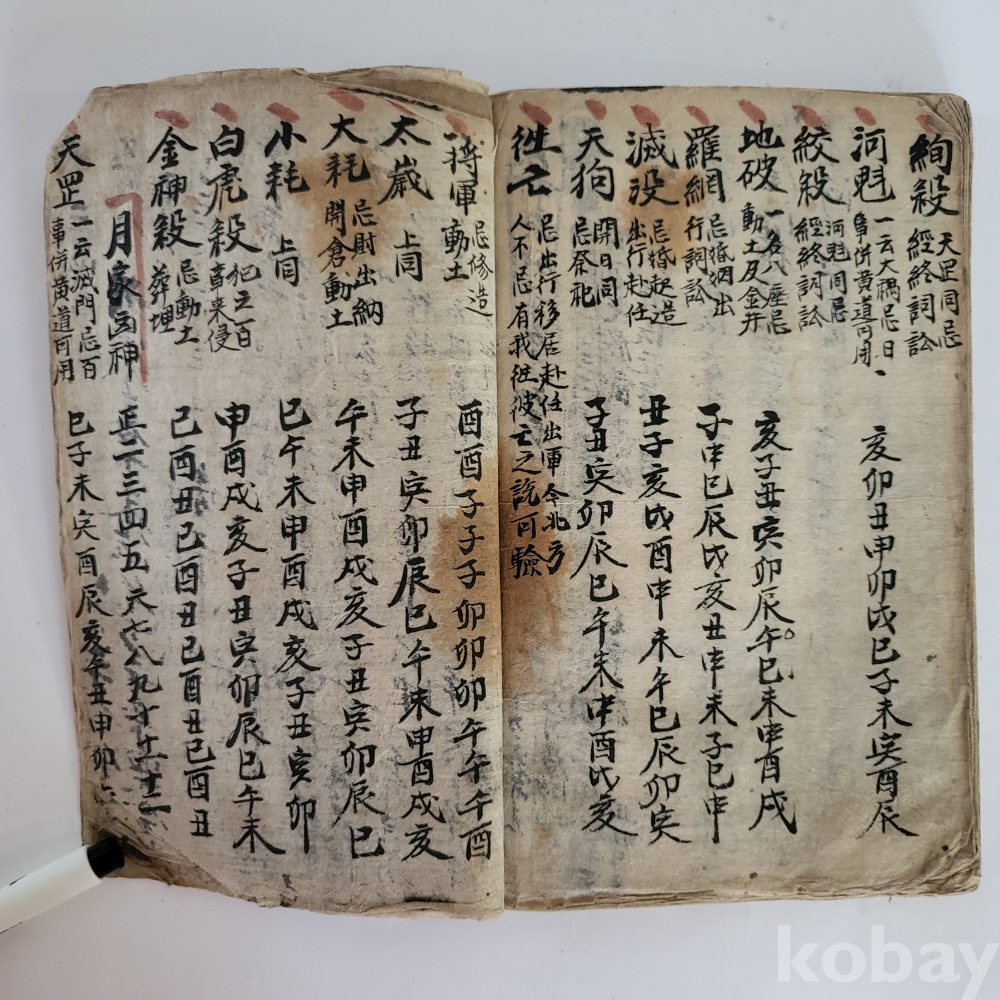 絢殺 天罡同忌 經終詞訟
河魁 一云大禍忌日 事併黃道可用 亥卯丑申卯戌巳子未寅酉辰
絞殺 河魁同忌 經終詞訟
地破 一名八座忌 動土及金井 亥子丑寅卯辰午巳未申酉戌
羅網 忌婚姻出 行詞訟 子申巳辰戌亥丑申未子巳申
滅没 忌婚起造 出行赴任 丑子亥戌酉申未午巳辰卯寅
天狗 開日同 忌祭祀 子丑寅卯辰巳午未申酉戌亥
徃亡 忌出行移居赴任出軍令北方 人不忌有我徃彼亡之說可驗
將軍 忌修造 動土 酉酉子子子卯卯卯午午午酉
太歲 上同 子丑寅卯辰巳午未申酉戌亥
大耗 忌財出納 開倉動土 午未申酉戌亥子丑寅卯辰巳
小耗 上同 巳午未申酉戌亥子丑寅卯
白虎殺 犯之百 事来侵 申酉戌亥子丑寅卯辰巳午未
金神殺 忌動土 葬埋 巳酉丑巳酉丑巳酉丑巳酉丑
月家凶神 正二三四五六七八九十十一十二
天罡 一云滅門忌百 事併黃道可用 巳子未寅酉辰亥午丑申卯
kobay